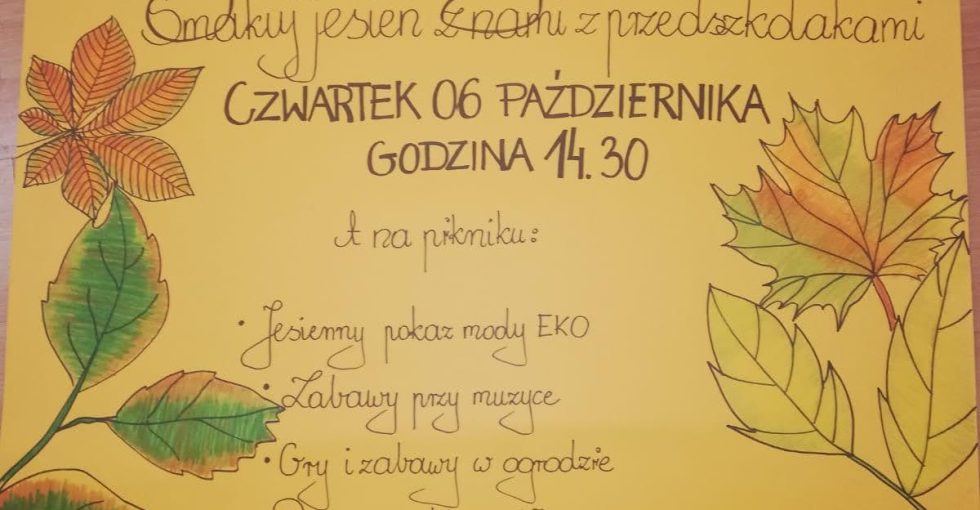 Smakuj jesień z nami z przedszkolakami
CZWARTEK 06 PAŹDZIERNIKA
GODZINA 14.30
A na pikniku:
• Jesienny pokaz mody EKO
• Zabawy przy muzyce
• Gry i zabawy w ogrodzie